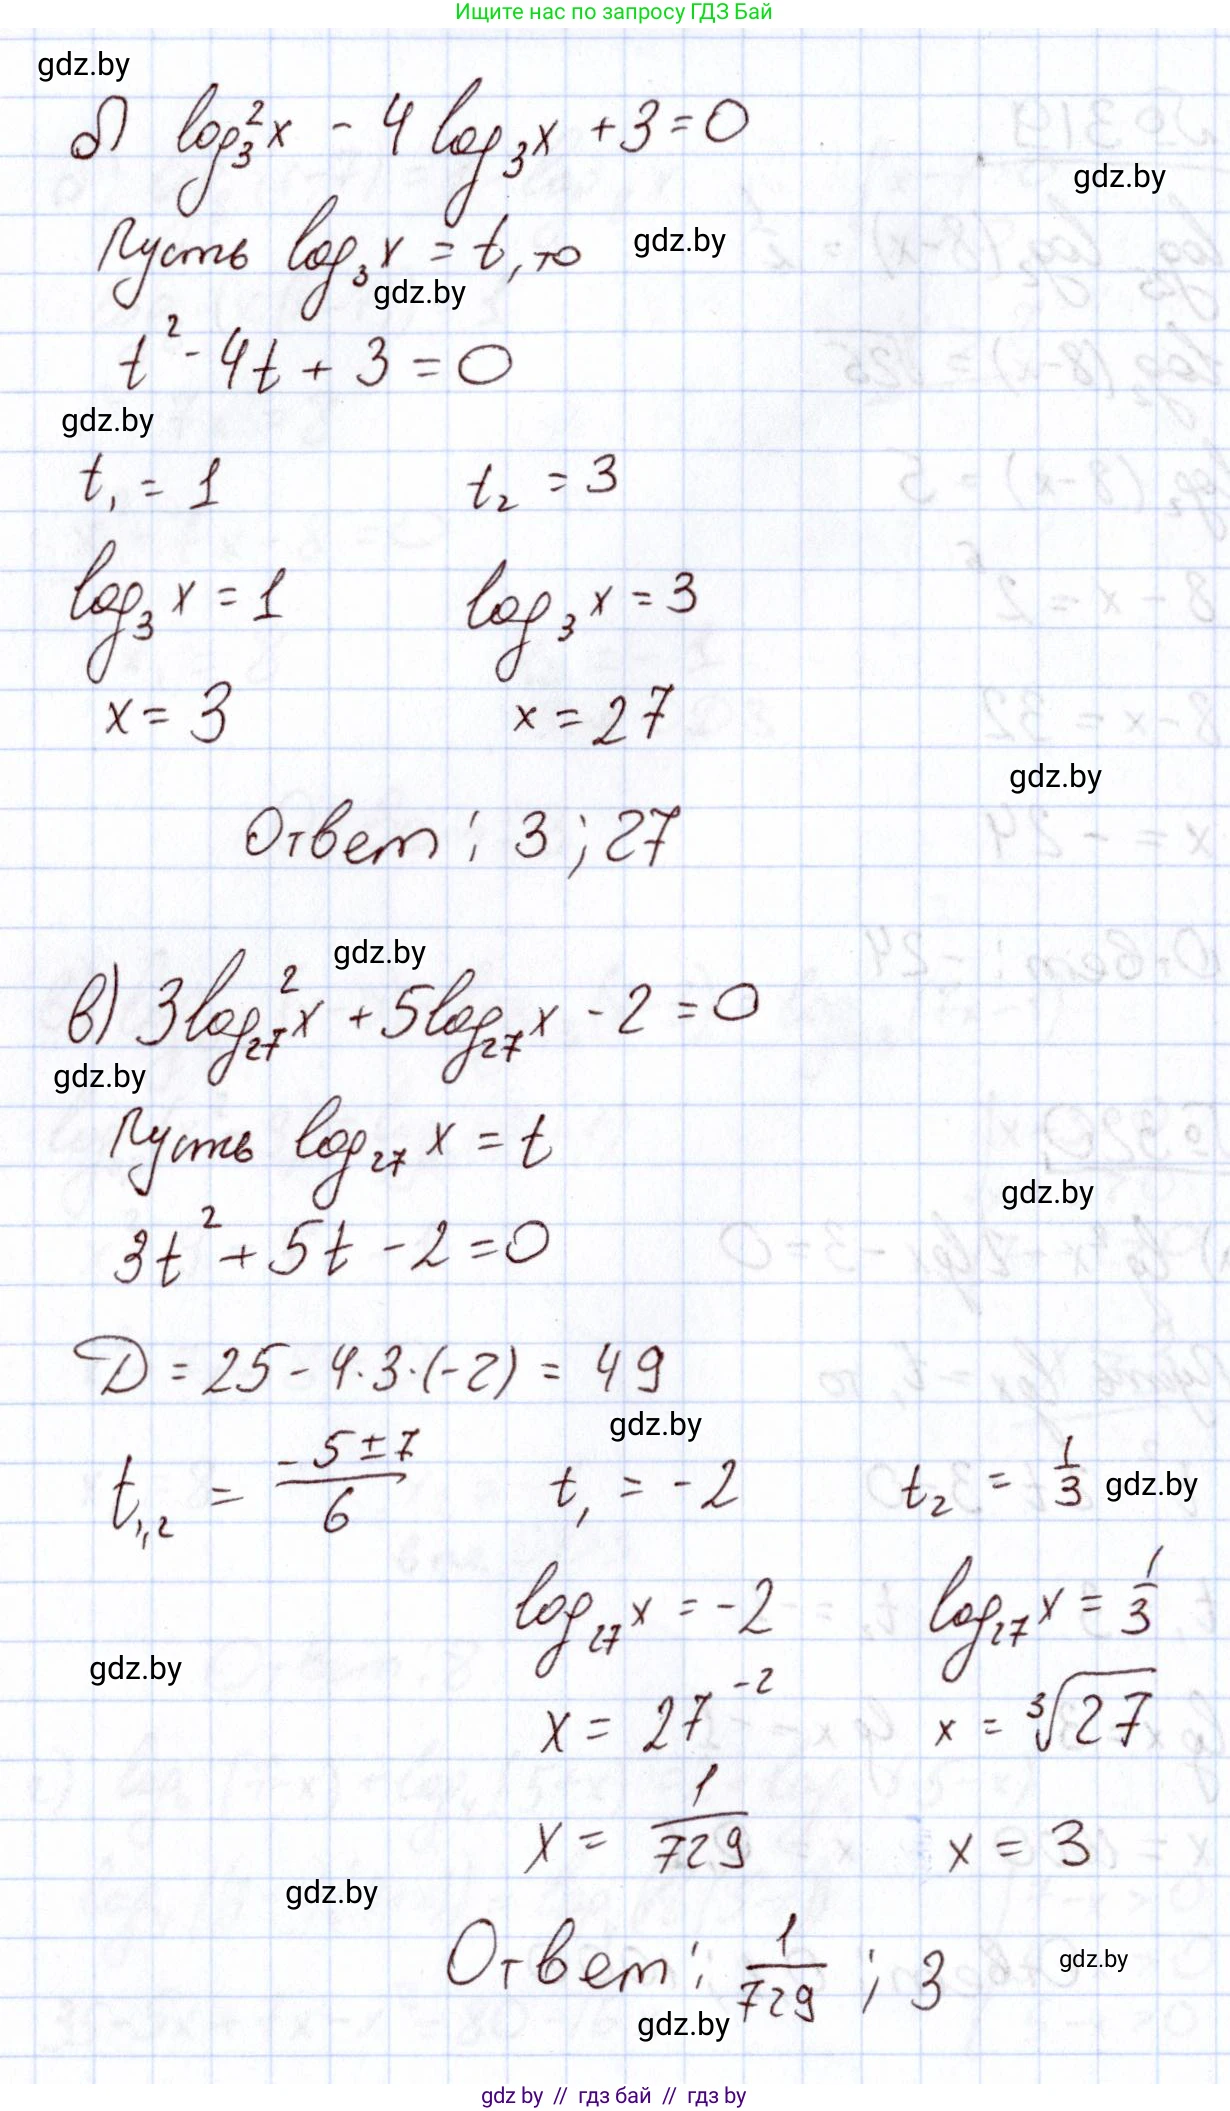 Ищите нас по запросу ГДЗ Бай
gdz.by
б) log₃²x - 4 log₃x + 3 = 0
gdz.by
Пусть log₃x = t, то
gdz.by
gdz.by
t² - 4t + 3 = 0
gdz.by
t₁ = 1 t₂ = 3
log₃x = 1 log₃x = 3
x = 3 x = 27
gdz.by
Ответ: 3; 27
gdz.by
в) 3log₂₇²x + 5log₂₇x - 2 = 0
gdz.by
Пусть log₂₇x = t
gdz.by
3t² + 5t - 2 = 0
D = 25 - 4·3·(-2) = 49
gdz.by
t₁,₂ = (-5±7)/6 t₁ = -2 t₂ = 1/3
gdz.by
log₂₇x = -2 log₂₇x = 1/3
gdz.by
x = 27⁻² x = ³√27
x = 1/729 x = 3
gdz.by
Ответ: 1/729; 3
gdz.by
gdz.by
gdz by // гдз бай // гдз by